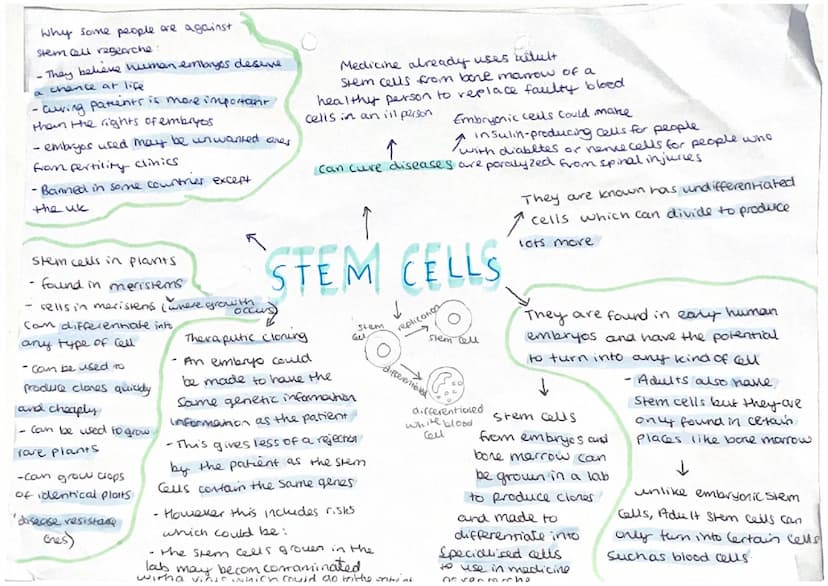 Why some people are against
stem cell researche:
- They believe human embryos deserve
a chance at life
- curing patients is more important
than the rights of embryos
- embryos used may be unwanted ones
from fertility clinics
- Banned in some countries except
the uk
Medicine already uses adult
stem cells from bone marrow of a
healthy person to replace faulty blood
cells in an ill person
Embryonic cells could make
insulin-producing cells for people
with diabetes or nerve cells for people who
are paralyzed from spinal injuries
can cure diseases
They are known has undifferentiated
cells which can divide to produce
lots more
STEM CELLS
stem cells in plants
- found in meristems
- cells in meristems (where growth
occurs)
can differentiate into
any type of cell
- can be used to
produce clones quickly
and cheaply
- can be used to grow
rare plants
- can grow crops
of identical plants
(disease resistance
ones)
Theraputic cloning
- An embryo could
be made to have the
same genetic information
information as the patient
- This gives less of a rejection
by the patient as the stem
cells contain the same genes
- However this includes risks
which could be:
- the stem cells grown in the
lab may becom contaminated
with a virus which could
stem
cell
replication
stem cell
differentiated
white blood
cell
They are found in early human
embryos and have the potential
to turn into any kind of cell
- Adults also have
stem cells but they are
only found in certain
places like bone marrow
unlike embryonic stem
cells, Adult stem cells can
only turn into certain cells
such as blood cells
stem cells
from embryos and
bone marrow can
be grown in a lab
to produce clones
and made to
differentiate into
specialised cells
to use in medicine